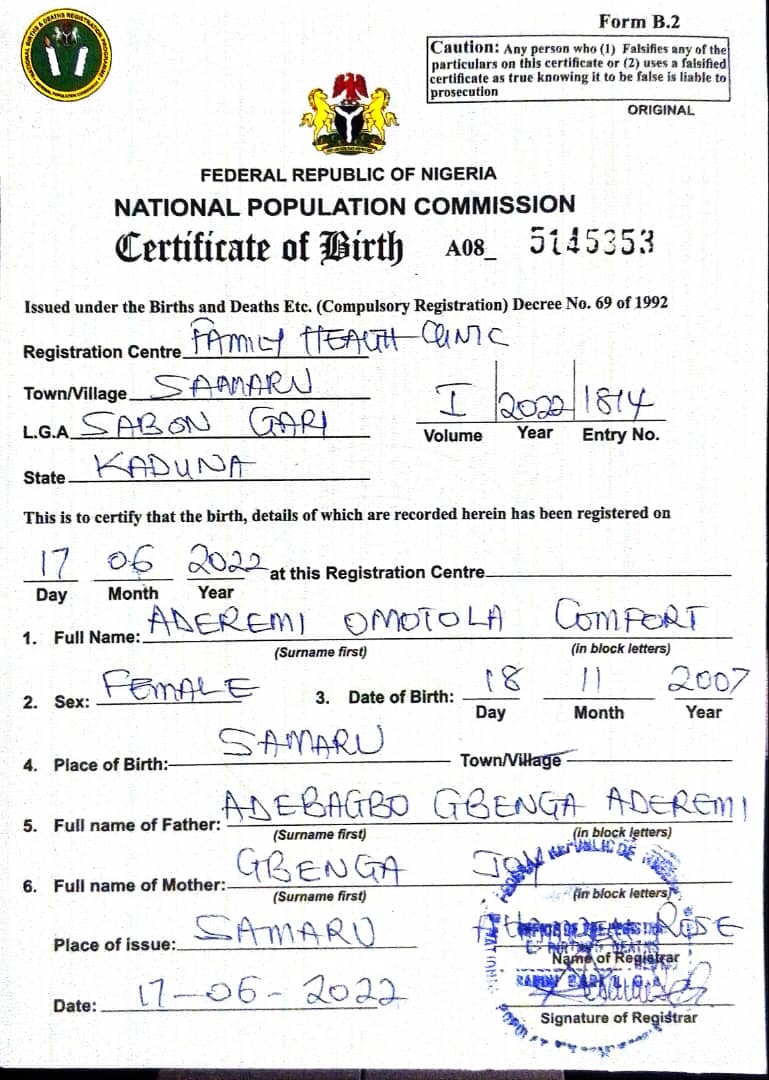 Form B.2
Caution: Any person who (1) Falsifies any of the
particulars on this certificate or (2) uses a falsified
certificate as true knowing it to be false is liable to
prosecution
ORIGINAL
FEDERAL REPUBLIC OF NIGERIA
NATIONAL POPULATION COMMISSION
Certificate of Birth A08_ 5145353
Issued under the Births and Deaths Etc. (Compulsory Registration) Decree No. 69 of 1992
Registration Centre FAMILY HEALTH CLINIC
Town/Village SAMARU
L.G.A SABON GARI
I 2022 1814
Volume Year Entry No.
State KADUNA
This is to certify that the birth, details of which are recorded herein has been registered on
17 06 2022 at this Registration Centre
Day Month Year
1. Full Name: ADEREMI OMOTOLA COMFORT
(Surname first) (in block letters)
2. Sex: FEMALE 3. Date of Birth: 18 11 2007
Day Month Year
4. Place of Birth: SAMARU Town/Village
5. Full name of Father: ADEBAGBO GBENGA ADEREMI
(Surname first) (in block letters)
6. Full name of Mother: GBENGA JOY
(Surname first) (in block letters)
Place of issue: SAMARU ROSE
Name of Registrar
Date: 17-06-2022
Signature of Registrar